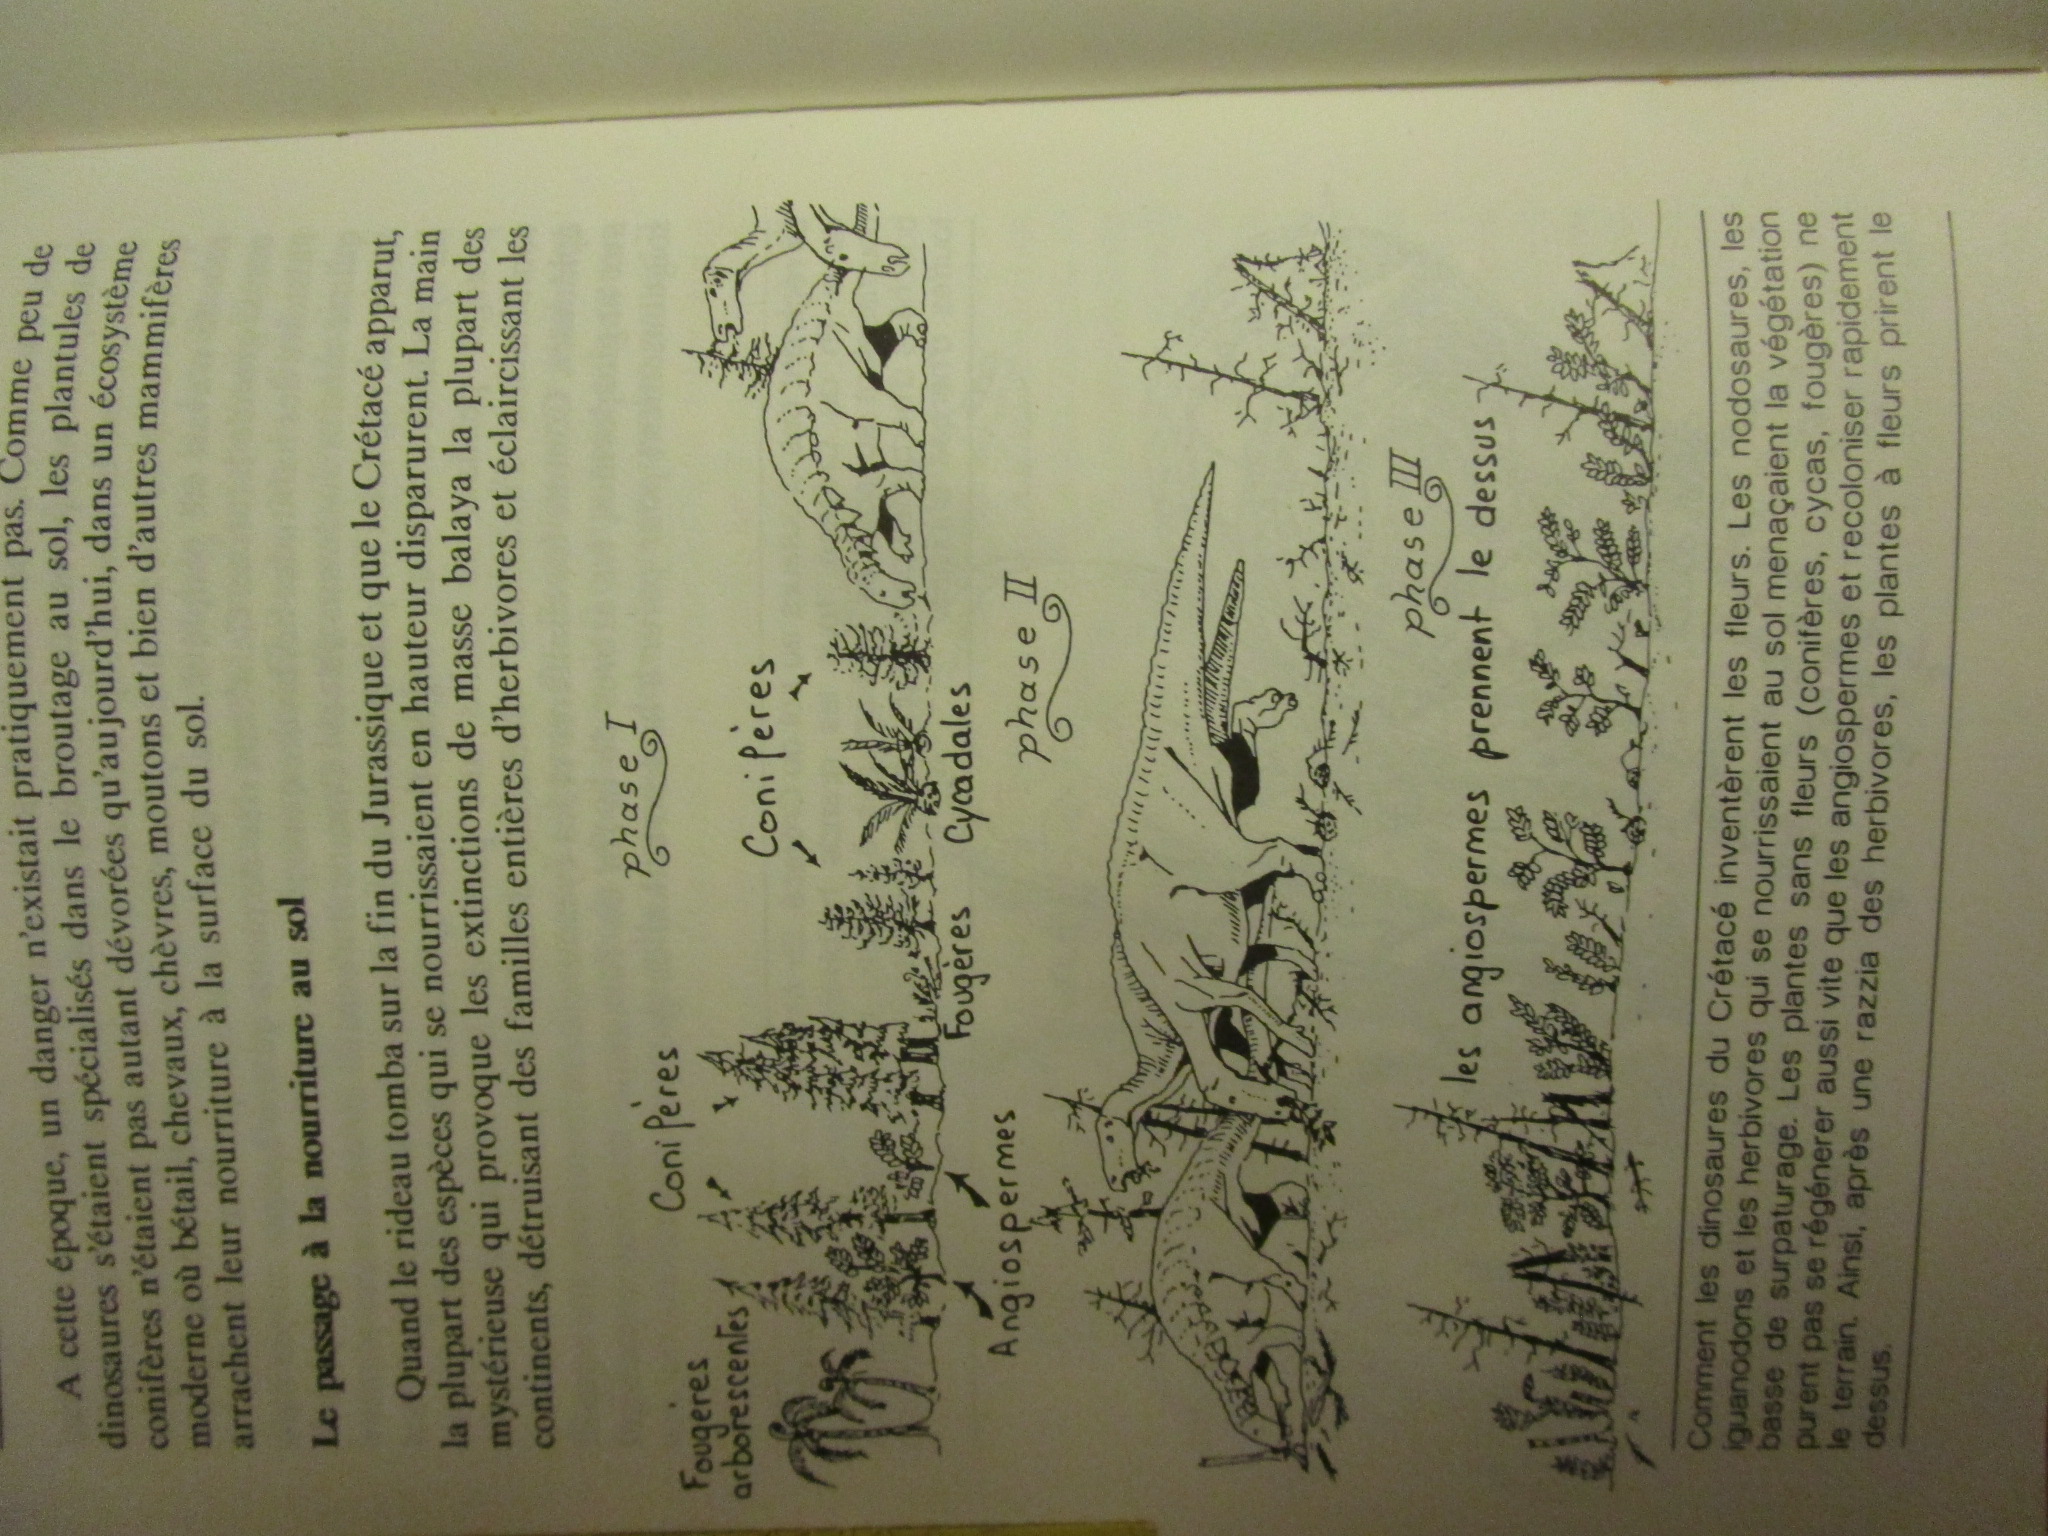 A cette époque, un danger n'existait pratiquement pas. Comme peu de
dinosaures s'étaient spécialisés dans le broutage au sol, les plantules de
conifères n'étaient pas autant dévorées qu'aujourd'hui, dans un écosystème
moderne où bétail, chevaux, chèvres, moutons et bien d'autres mammifères
arrachent leur nourriture à la surface du sol.
Le passage à la nourriture au sol
Quand le rideau tomba sur la fin du Jurassique et que le Crétacé apparut,
la plupart des espèces qui se nourrissaient en hauteur disparurent. La main
mystérieuse qui provoque les extinctions de masse balaya la plupart des
continents, détruisant des familles entières d'herbivores et éclaircissant les
phase I
Conifères
Conifères
Fougères
arborescentes
Angiospermes
Fougères
Cycadales
phase II
phase III
les angiospermes prennent le dessus
Comment les dinosaures du Crétacé inventèrent les fleurs. Les nodosaures, les
iguanodons et les herbivores qui se nourrissaient au sol menaçaient la végétation
basse de surpaturage. Les plantes sans fleurs (conifères, cycas, fougères) ne
purent pas se régénérer aussi vite que les angiospermes et recoloniser rapidement
le terrain. Ainsi, après une razzia des herbivores, les plantes à fleurs prirent le
dessus.